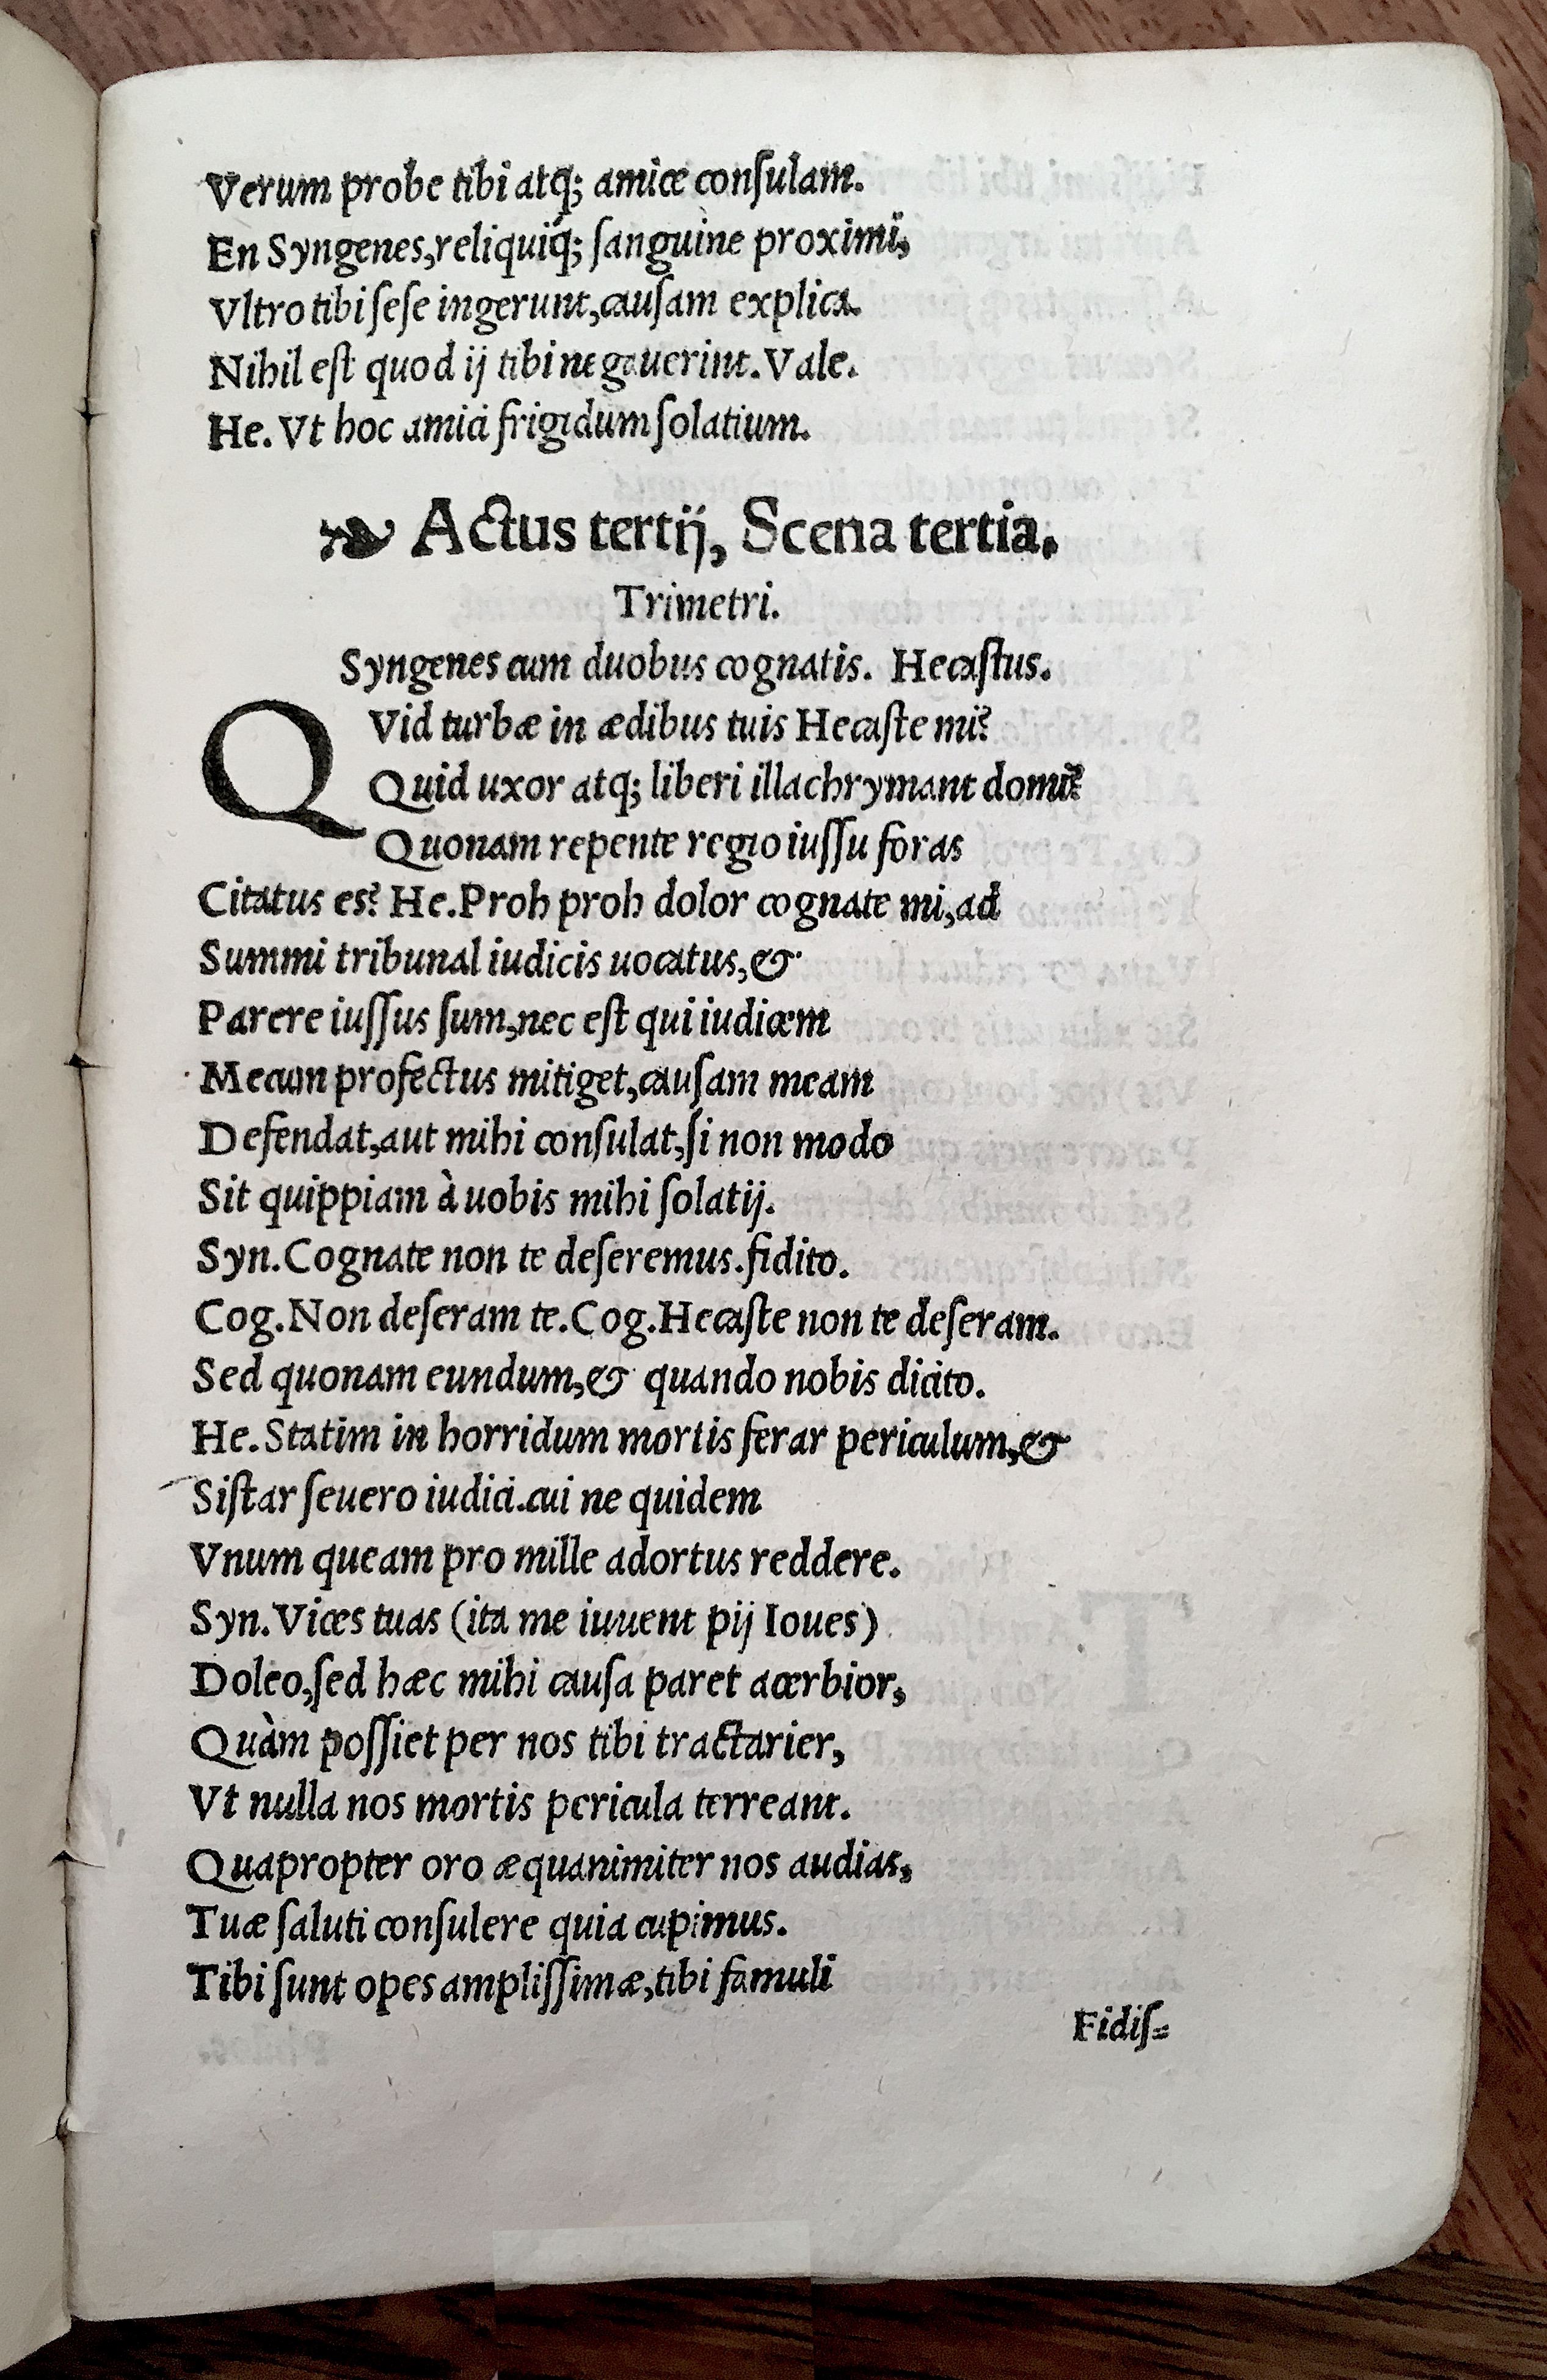 Verum probe tibi atq; amice conſulam.
En Syngenes, reliquiq́; ſanguine proximi,
Vltro tibi ſeſe ingerunt, cauſam explica.
Nihil eſt quod ij tibi negauerint. Vale.
He. Vt hoc amici frigidum ſolatium.
❧ Actus tertij, Scena tertia.
Trimetri.
Syngenes cum duobus cognatis. Hecaſtus.
QVid turbæ in ædibus tuis Hecaſte mi?
Quid uxor atq; liberi illachrymant domi?
Quonam repente regio iuſſu foras
Citatus es? He. Proh proh dolor cognate mi, ad
Summi tribunal iudicis uocatus, &
Parere iuſſus ſum, nec eſt qui iudicem
Mecum profectus mitiget, cauſam meam
Defendat, aut mihi conſulat, ſi non modo
Sit quippiam à uobis mihi ſolatij.
Syn. Cognate non te deſeremus. fidito.
Cog. Non deſeram te. Cog. Hecaſte non te deſeram.
Sed quonam eundum, & quando nobis dicito.
He. Statim in horridum mortis ferar periculum, &
Siſtar ſeuero iudici. cui ne quidem
Vnum queam pro mille adortus reddere.
Syn. Vices tuas (ita me iuuent pij Ioues)
Doleo, ſed hæc mihi cauſa paret acerbior,
Quàm poſſiet per nos tibi tractarier,
Vt nulla nos mortis pericula terreant.
Quapropter oro æquanimiter nos audias,
Tuæ ſaluti conſulere quia cupimus.
Tibi ſunt opes ampliſſimæ, tibi famuli
Fidiſ=